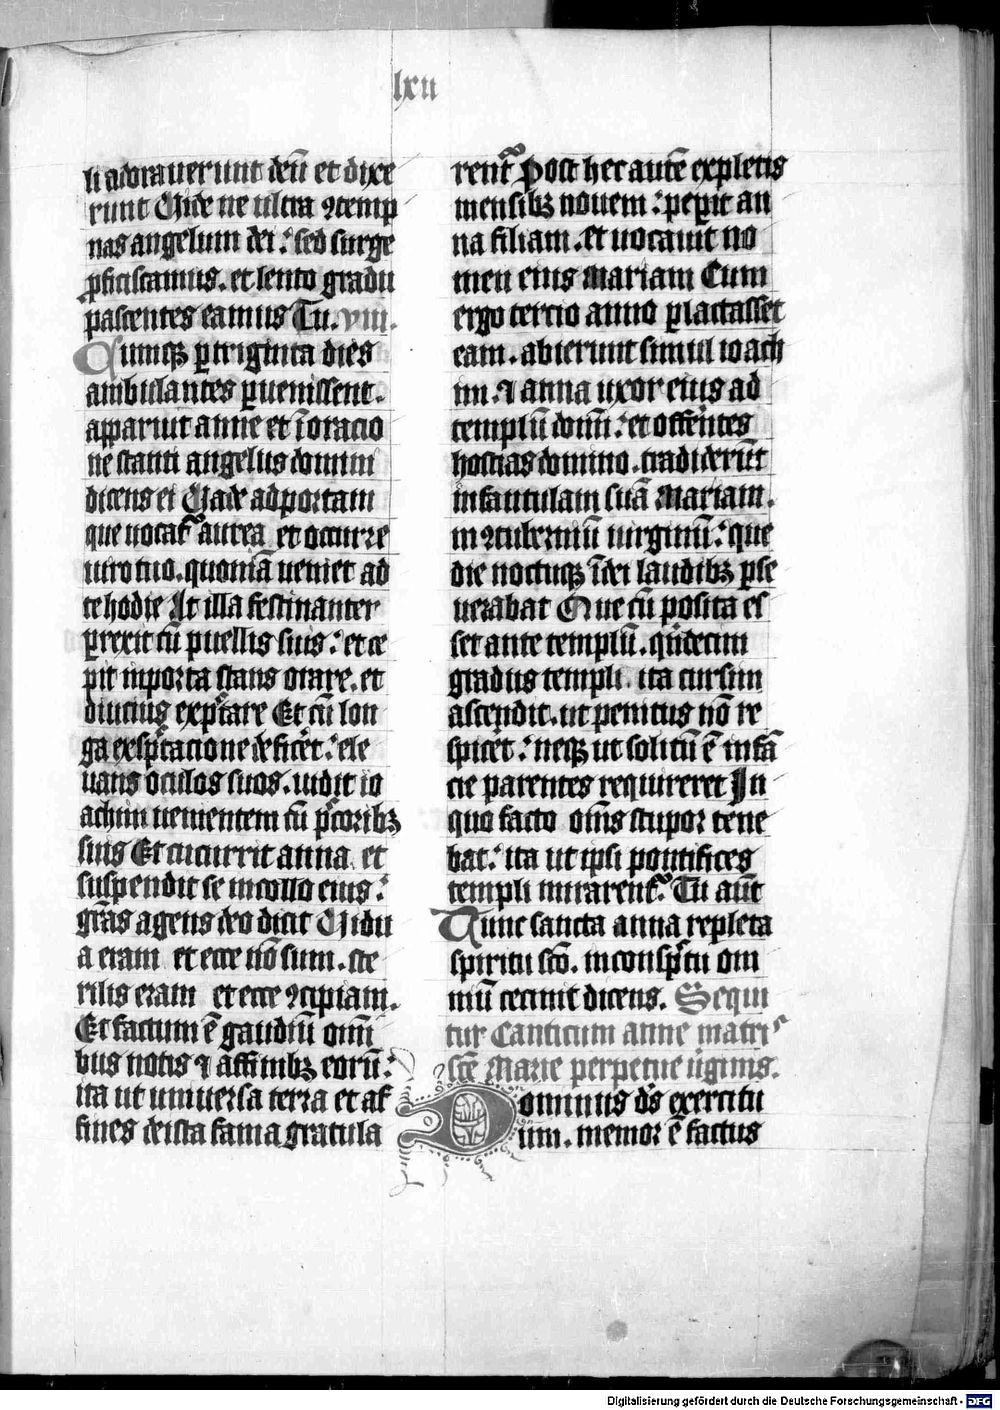 lxii
li adorauerunt deū et dixe
runt Uide ne ultra ꝯtemp
nas angelum dei : sed surge
ꝓficiscamus . et lento gradu
pascentes eamus Tu . viii .
Cumqꝫ ꝑ triginta dies
ambulantes ꝑuenissent .
apparuit anne et ī oracio
ne stanti angelus domini
dicens ei Uade ad portam
que uocat᷑ aurea et occurre
uiro tuo . quoniā ueniet ad
te hodie At illa festinanter
ꝑrexit cū puellis suis : et ce
pit in porta stans orare . et
diucius exꝑtare Et cū lon
ga exsp̄ctacione deficēt : ele
uans oculos suos . uidit io
achim uenientem cū pecoribꝫ
suis Et cucurrit anna et
suspendit se in collo eius :
gr̄as agens deo dicit Uidu
a eram et ecce nō sum . ste
rilis eram et ecce ꝯcipiam .
Et factum ē gaudiū omī
bus notis ⁊ affinibꝫ eorū :
ita ut uniuersa terra et af
fines de ista fama gratula
rent᷑ Post hec autē expletis
mensibꝫ nouem : peꝑit an
na filiam . et uocauit no
men eius Mariam Cum
ergo tercio anno ꝑlactasset
eam . abierunt simul ioach
im . ⁊ anna uxor eius ad
templū domī : et offerētes
hostias domino . tradiderūt
infantulam suā Mariam .
in ꝯtuberniū uirginū : que
die noctuqꝫ ī dei laudibꝫ ꝑse
uerabat Que cū posita es
set ante templū . qⁱndecim
gradus templi . ita cursim
ascendit . ut penitus nō re
spicēt : neqꝫ ut solitū ē infā
cie parentes requireret In
quo facto om̄s stupor tene
bat : ita ut ipsi pontifices
templi mirarent᷑ Tu aūt
Tunc sancta anna repleta
spiritu sc̄o . in consp̄ctu om
niū cecinit dicens . Sequi
tur Canticum anne matris
sc̄e Marie perpetue ūginis .
Dominus dˢ exercitu
um . memor ē factus
Digitalisierung gefördert durch die Deutsche Forschungsgemeinschaft - DFG